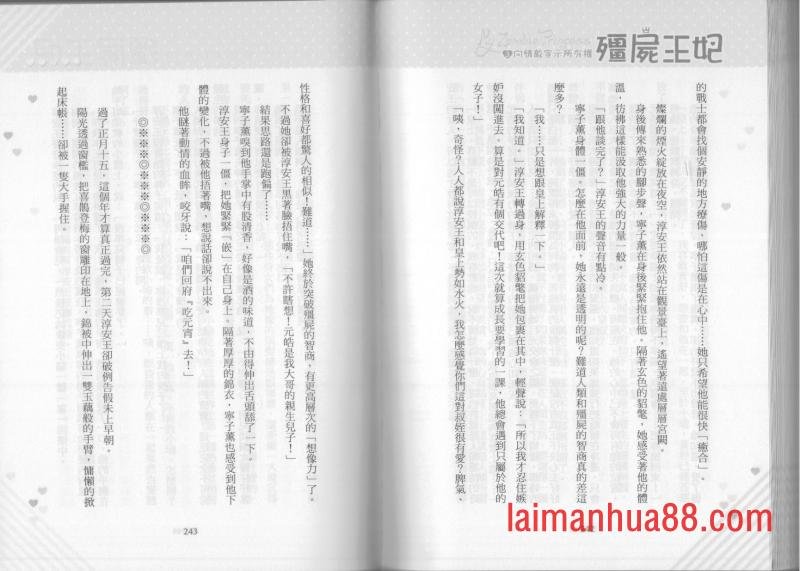 Zombie Princess
殭屍王妃
向情敵宣示所有權
的戰士都會找個安靜的地方療傷，哪怕這傷是在心中……她只希望他能很快「癒合」。
燦爛的煙火綻放在夜空，淳安王依然站在觀景臺上，遙望著這處層層宮闕。
身後傳來熟悉的腳步聲，寧子薰在身後緊緊抱住他。隔著玄色的貂氅，她感受著他的體
溫，彷彿這樣能汲取他強大的力量一般。
「跟他談完了？」淳安王的聲音有點冷。
寧子薰身體一僵。怎麼在他面前，她永遠是透明的呢？難道人類和殭屍的智商真的差這
麼多？
「我……只是想跟皇上解釋一下。」
「我知道。」淳安王轉過身，用玄色貂氅把她包裹在其中，輕聲說：「所以我才忍住嫉
妒沒闖進去。算是對元皓有個交代吧！這次就算成長要學習的一課，他總會遇到只屬於他的
女子！」
「咦，奇怪？人人都說淳安王和皇上勢如水火，我怎麼感覺你們這對叔姪很有愛？脾氣、
性格和喜好都驚人的相似！難道……」她終於突破殭屍的智商，有更高層次的「想像力」了。
不過她卻被淳安王黑著臉捂住嘴，「不許瞎想！元皓是我大哥的親生兒子！」
結果思路還是跑偏了……
寧子薰嗅到他手掌中有股清香，好像是酒的味道，不由得伸出舌頭舔了一下。
淳安王身子一僵，把她緊緊「嵌」在自己身上。隔著厚厚的錦衣，寧子薰也感受到他下
體的變化，不過被他捂著嘴，想說話卻說不出來。
他瞇著動情的血眸，咬牙說：「咱們回府『吃元宵』去！」
◎※※※◎※※※◎※※※◎
過了正月十五，這個年才算真正過完，第二天淳安王卻破例告假未上早朝。
陽光透過窗櫺，把喜鵲登梅的窗雕印在地上，錦被中伸出一雙玉藕般的手臂，慵懶的掀
起床帳……卻被一隻大手握住。
243
laimanhua88.com